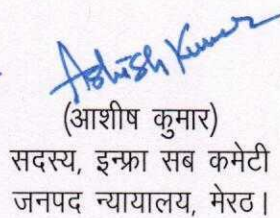 Ashish Kumar
(आशीष कुमार)
सदस्य, इन्फ्रा सब कमेटी
जनपद न्यायालय, मेरठ।